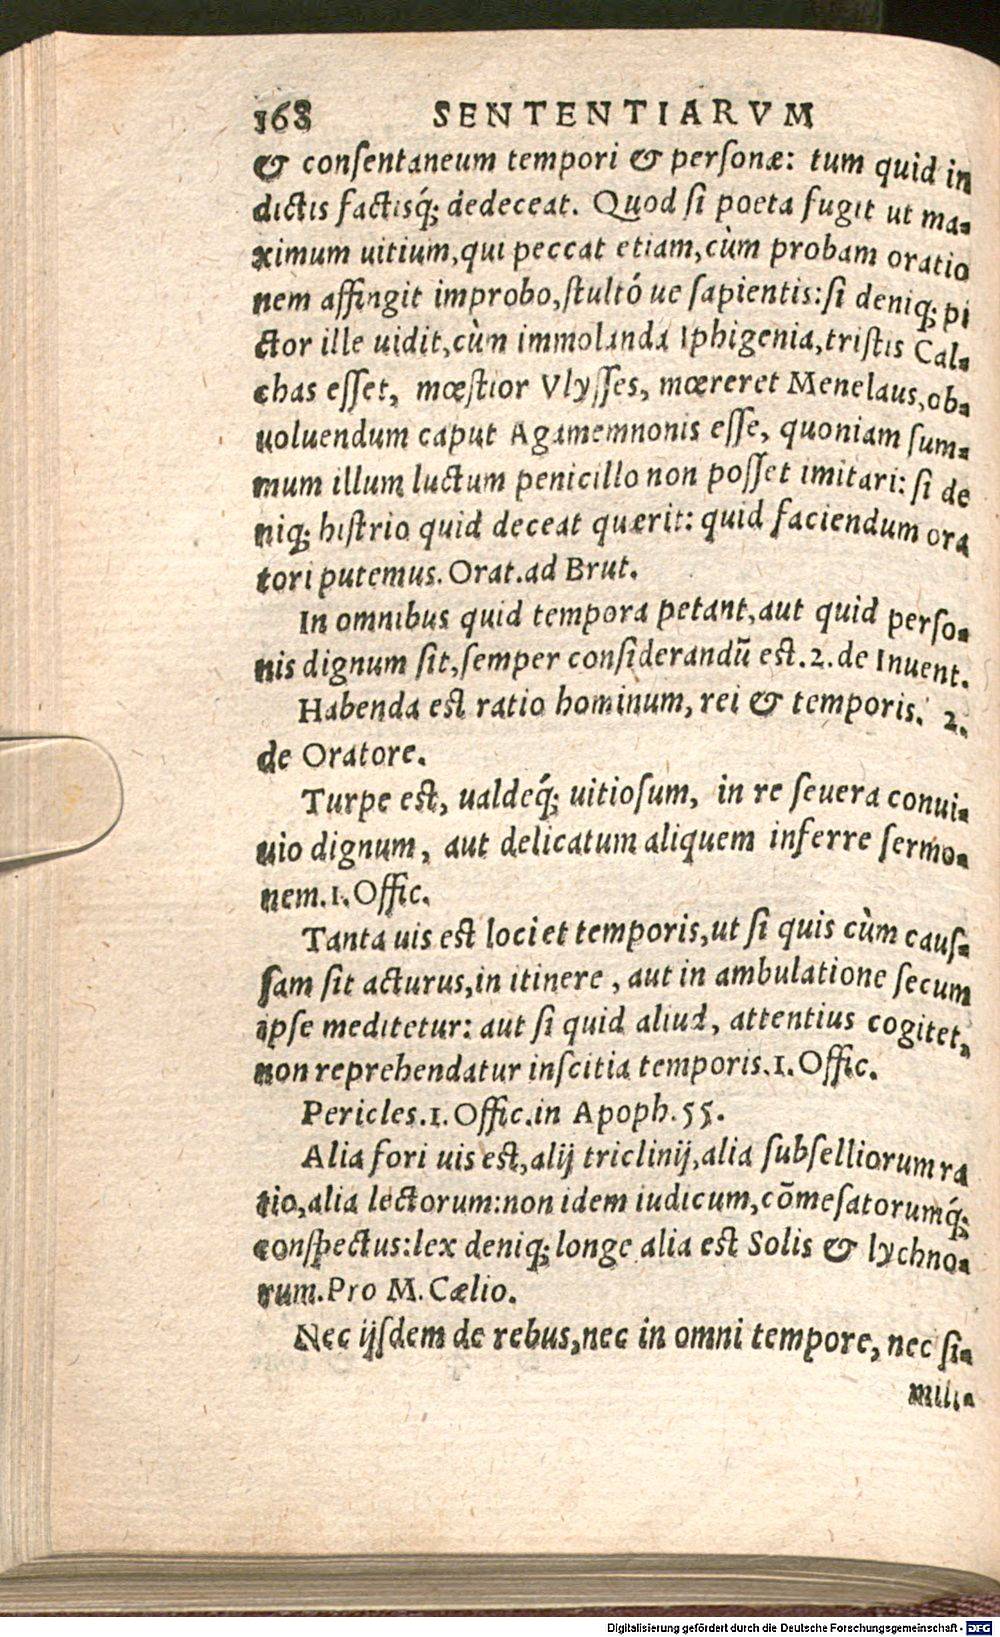 168 SENTENTIARVM
& consentaneum tempori & personæ: tum quid in
dictis factisq́; dedeceat. Quod si poeta fugit ut ma-
ximum uitium, qui peccat etiam, cùm probam oratio
nem affingit improbo, stultó ue sapientis: si deniq; pi
ctor ille uidit, cùm immolanda Iphigenia, tristis Cal-
chas esset, mœstior Vlysses, mœreret Menelaus, ob-
uoluendum caput Agamemnonis esse, quoniam sum-
mum illum luctum penicillo non posset imitari: si de
niq; histrio quid deceat quærit: quid faciendum ora
tori putemus. Orat. ad Brut.
In omnibus quid tempora petant, aut quid perso-
nis dignum sit, semper considerandū est. 2. de Inuent.
Habenda est ratio hominum, rei & temporis. 2.
de Oratore.
Turpe est, ualdeq́; uitiosum, in re seuera conui-
uio dignum, aut delicatum aliquem inferre sermo-
nem. 1. Offic.
Tanta uis est loci et temporis, ut si quis cùm caus-
sam sit acturus, in itinere, aut in ambulatione secum
ipse meditetur: aut si quid aliud, attentius cogitet,
non reprehendatur inscitia temporis. 1. Offic.
Pericles. 1. Offic. in Apoph. 55.
Alia fori uis est, alij triclinij, alia subselliorum ra
tio, alia lectorum: non idem iudicum, cōmesatorumq́;
conspectus: lex deniq; longe alia est Solis & lychno-
rum. Pro M. Cælio.
Nec ijsdem de rebus, nec in omni tempore, nec si-
mili-
Digitalisierung gefördert durch die Deutsche Forschungsgemeinschaft - DFG